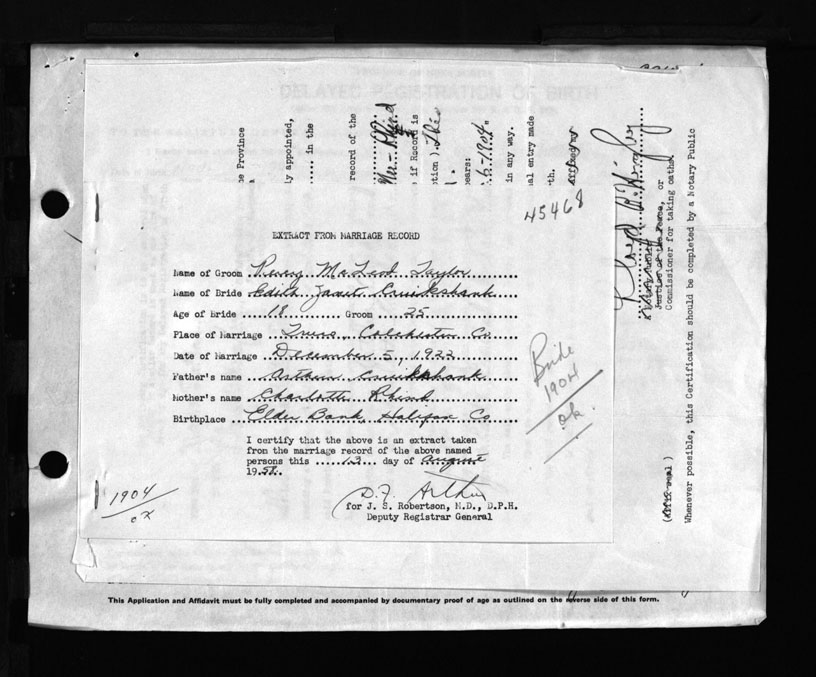 DELAYED REGISTRATION OF BIRTH
e Province
y appointed,
..... in the
record of the
if Record is
otion). The
ears:
1904
in any way.
al entry made
th.
45468
EXTRACT FROM MARRIAGE RECORD
Name of Groom McLeod Taylor
Name of Bride Edith Janet Cruikshank
Age of Bride 18 Groom 25
Place of Marriage Truro, Colchester Co
Date of Marriage December 5, 1922
Father's name Arthur Cruikshank
Mother's name Charlotte Rhind
Birthplace Elder Bank, Halifax Co
I certify that the above is an extract taken
from the marriage record of the above named
persons this 13 day of August
1958.
D.F. Arthur
for J. S. Robertson, M.D., D.P.H.
Deputy Registrar General
Bride
1904
ok.
1904
ok
A Notary Public
Justice of the Peace, or
Commissioner for taking oaths
(Affix seal)
Whenever possible, this Certification should be completed by a Notary Public
This Application and Affidavit must be fully completed and accompanied by documentary proof of age as outlined on the reverse side of this form.